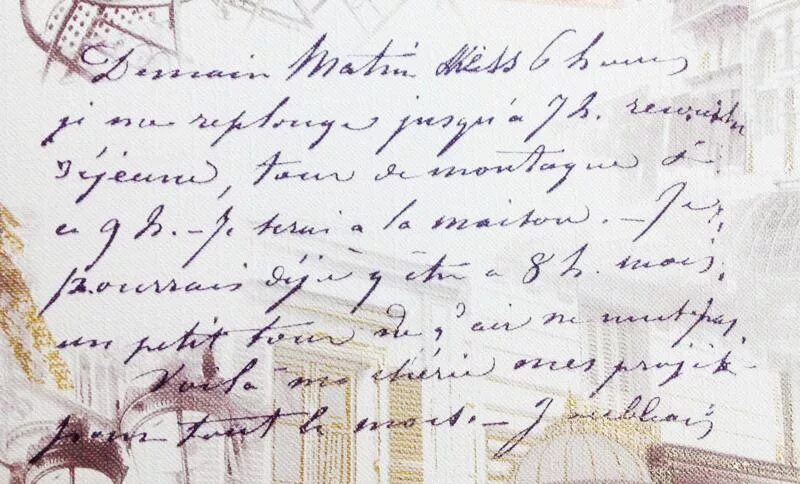 Demain Matin dès 6 heures
je me replonge jusqu'à 7 h.
déjeune, tour de montagne &
a 9 h. - Je serai a la maison. - Je
pourrais déjà y être a 8 h. mais
un petit tour d'air ne nuit pas
Voilà ma chérie mes projets
pour tout le mois. - J'oubliais